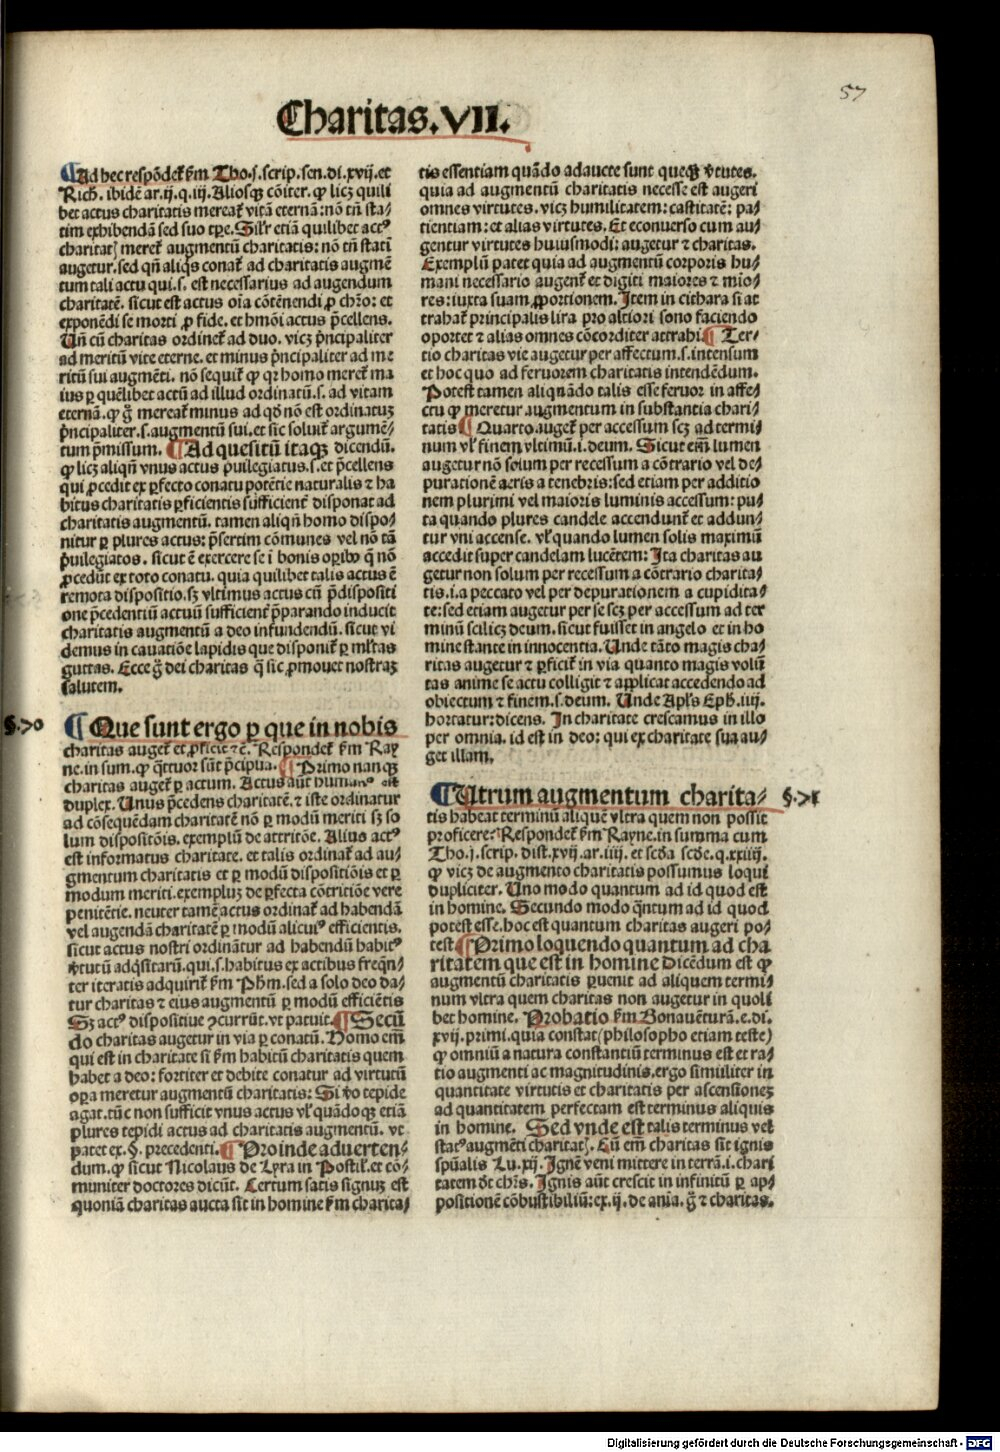 57
Charitas.VII.
¶Ad hec respõdet̃ ẝm Tho.j.scrip.sen.di.xvij.et
Rich. ibidẽ ar.ij.q.iij. Aliosqꝫ cõiter. ꝙ licꝫ quili
bet actus charitatis mereat̃ vitã eternã: nõ tñ sta/
tim exhibendã sed suo tp̃e. Sil'r etiã quilibet actꝰ
charitatꝭ meret̃ augmentũ charitatis: nõ tñ statĩ
augetur. sed qñ aliqͥs conat̃ ad charitatis augmẽ
tum tali actu qui.s. est necessarius ad augendum
charitatẽ. sicut est actus oĩa cõtẽnendi ꝓ chr̃o: et
exponẽdi se morti ꝓ fide. et hmõi actus p̃cellens.
Uñ cũ charitas ordinet̃ ad duo. vicꝫ pͥncipaliter
ad meritũ vite eterne. et minus pͥncipaliter ad me
ritũ sui augmẽti. nõ sequit̃ ꝙ qꝛ homo meret̃ ma
ius ꝑ quẽlibet actũ ad illud ordinatũ.s. ad vitam
eternã. ꝙ g̃ mereat̃ minus ad qd̃ nõ est ordinatuꝫ
pͥncipaliter.s. augmentũ sui. et sic soluit̃ argumẽ/
tum p̃missum. ¶Ad quesitũ itaqꝫ dicendũ.
ꝙ licꝫ aliqñ vnus actus pͥuilegiatus.s. et p̃cellens
qui ꝓcedit ex ꝑfecto conatu potẽtie naturalis ⁊ ha
bitus charitatis ꝑficientis sufficient̃ disponat ad
charitatis augmentũ. tamen aliqñ homo dispo/
nitur ꝑ plures actus: p̃sertim cõmunes vel nõ tã
pͥuilegiatos. sicut ẽ exercere se ĩ bonis oꝑibꝰ q̃ nõ
ꝓcedũt ex toto conatu. quia quilibet talis actus ẽ
remota dispositio. sꝫ vltimus actus cũ p̃dispositi
one p̃cedentiũ actuũ sufficient̃ p̃parando inducit
charitatis augmentũ a deo infundendũ. sicut vi
demus in cauatiõe lapidis que disponit̃ ꝑ ml'tas
guttas. Ecce g̃ dei charitas q̃ sic ꝓmouet nostraꝫ
salutem.
§.70 ¶Que sunt ergo ꝑ que in nobis
charitas auget̃ et ꝓficit ⁊c̃. Respondet̃ ẝm Ray
ne. in sum. ꝙ q̃ttuor sũt p̃cipua. ¶Primo nanqꝫ
charitas auget̃ ꝑ actum. Actus aũt humanꝰ est
duplex. Unus p̃cedens charitatẽ. ⁊ iste ordinatur
ad cõsequẽdam charitatẽ nõ ꝑ modũ meriti sꝫ so
lum dispositõis. exemplũ de attritõe. Alius actꝰ
est informatus charitate. et talis ordinat̃ ad au/
gmentum charitatis et ꝑ modũ dispositiõis et ꝑ
modum meriti. exempluꝫ de ꝑfecta cõtritiõe vere
penitẽtie. neuter tamẽ actus ordinat̃ ad habendã
vel augendã charitatẽ ꝑ modũ alicuiꝰ efficientis.
sicut actus nostri ordinãtur ad habendũ habitꝰ
ṽtutũ adqͥsitarũ. qui.s. habitus ex actibus freqñ/
ter iteratis adquirit̃ ẝm Ph̃m. sed a solo deo da/
tur charitas ⁊ eius augmentũ ꝑ modũ efficiẽtis
Sꝫ actꝰ dispositiue ꝯcurrũt. vt patuit. ¶Secũ
do charitas augetur in via ꝑ conatũ. Homo em̃
qui est in charitate si ẝm habitũ charitatis quem
habet a deo: fortiter et debite conatur ad virtutũ
oꝑa meretur augmentũ charitatis: Si ṽo tepide
agat. tũc non sufficit vnus actus vl' quãdoqꝫ etiã
plures tepidi actus ad charitatis augmentũ. vt
patet ex.§. precedenti. ¶Proinde aduerten/
dum. ꝙ sicut Nicolaus de Lyra in Postil̃. et cõ/
muniter doctores dicũt. Certum satis signuꝫ est
quoniã charitas aucta sit in homine ẝm charita/
tis essentiam quãdo adaucte sunt queqꝫ ṽtutes.
quia ad augmentũ charitatis necesse est augeri
omnes virtutes. vicꝫ humilitatem: castitatẽ: pa/
tientiam: et alias virtutes. Et econuerso cum au/
gentur virtutes huiusmodi: augetur ⁊ charitas.
Exemplũ patet quia ad augmentũ corporis hu/
mani necessario augent̃ et digiti maiores ⁊ mio/
res: iuxta suam ꝓportionem. Item in cithara si at
trahat̃ principalis lira pro altiori sono faciendo
oportet ⁊ alias omnes cõcorditer attrahi. ¶Ter/
tio charitas vie augetur per affectum.s. intensum
et hoc quo ad feruorem charitatis intendẽdum.
Potest tamen aliquãdo talis esse feruor in affe/
ctu ꝙ meretur augmentum in substantia chari/
tatis ¶Quarto auget̃ per accessum scꝫ ad termi/
num vl' finem vltimũ.i. deum. Sicut em̃ lumen
augetur nõ solum per recessum a cõtrario vel de/
purationẽ aeris a tenebris: sed etiam per additio
nem plurimi vel maioris luminis accessum: pu/
ta quando plures candele accendunt̃ et addun/
tur vni accense. vl' quando lumen solis maximũ
accedit super candelam lucẽtem: Ita charitas au
getur non solum per recessum a cõtrario charita/
tis.i. a peccato vel per depurationem a cupidita/
te: sed etiam augetur per se scꝫ per accessum ad ter
minũ scilicꝫ deum. sicut fuisset in angelo et in ho
mine stante in innocentia. Unde tãto magis cha/
ritas augetur ⁊ ꝑficit̃ in via quanto magis volũ/
tas anime se actu colligit ⁊ applicat accedendo ad
obiectum ⁊ finem.s. deum. Unde Apl's Eph̃. iiij.
hortatur: dicens. In charitate crescamus in illo
per omnia. id est in deo: qui ex charitate sua au/
get illam.
¶Utrum augmentum charita/ §.71
tis habeat terminũ aliquẽ vltra quem non possit
proficere? Respondet̃ ẝm Rayne. in summa cum
Tho.j. scrip. dist.xvij. ar.iiij. et scd̃a scd̃e. q.xxiiij.
ꝙ vicꝫ de augmento charitatis possumus loqui
dupliciter. Uno modo quantum ad id quod est
in homine. Secundo modo q̃ntum ad id quod
potest esse. hoc est quantum charitas augeri po/
test ¶Primo loquendo quantum ad cha
ritatem que est in homine Dicẽdum est ꝙ
augmentũ charitatis ꝑuenit ad aliquem termi/
num vltra quem charitas non augetur in quoli
bet homine. Probatio ẝm Bonauẽturã. e. di.
xvij. primi. quia constat (philosopho etiam teste)
ꝙ omniũ a natura constantiũ terminus est et ra/
tio augmenti ac magnitudinis. ergo similiter in
quantitate virtutis et charitatis per ascensioneꝫ
ad quantitatem perfectam est terminus aliquis
in homine. Sed vnde est talis terminus vel
statꝰ augmẽti charitatꝭ. Cũ em̃ charitas sit ignis
spũalis Lu.xij. Ignẽ veni mittere in terrã.i. chari
tatem dt̃ chr̃s. Ignis aũt crescit in infinitũ ꝑ ap/
positionẽ cõbustibiliũ: ex.ij. de anĩa. g̃ ⁊ charitas.
Digitalisierung gefördert durch die Deutsche Forschungsgemeinschaft - DFG